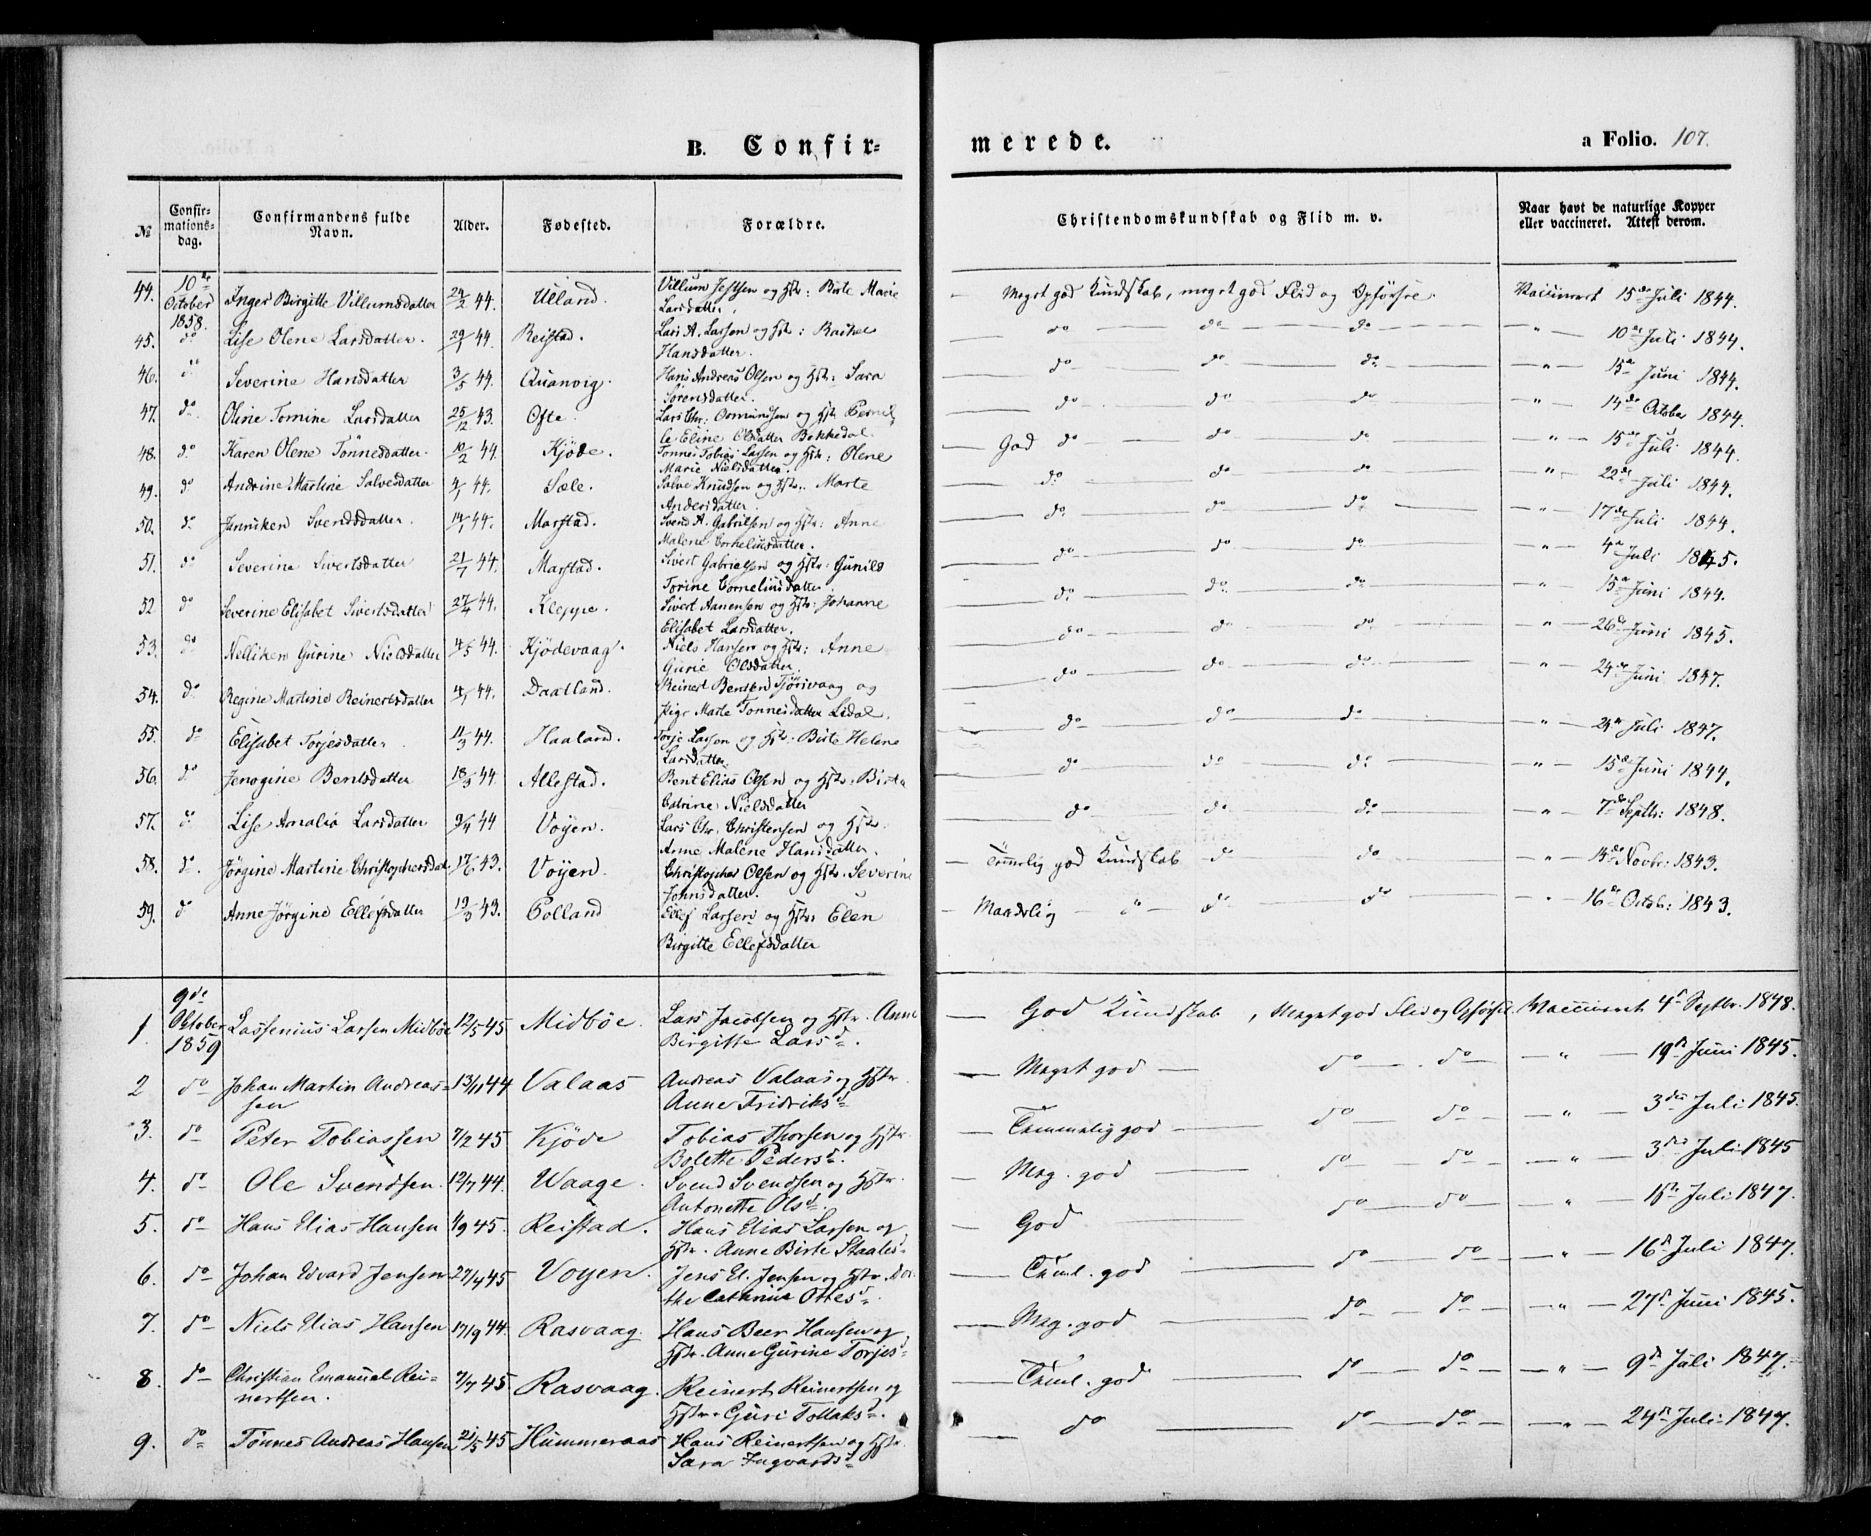 B. Confir-
merede.
a Folio. 107.
№
Confirmationsdag.
Confirmandens fulde Navn.
Alder.
Fødested.
Forældre.
Christendomskundskab og Flid m. v.
Naar havt de naturlige Kopper eller vaccineret. Attest derom.
44. 10de October 1858. Inger Birgitte Villumsdatter 44. Ueland. Villum Jessen og Hstr: Birte Marie Larsdatter. Meget god Kundskab, meget god Flid og Opførsel. Vaccineret 15de Juli 1844.
45. do Lise Olene Larsdatter. 29/1 44. Reistad. Lars A. Larsen og Hstr: Rachel Hansdatter. do do do " 10de Juli 1844.
46. do Severine Hansdatter 3/5 44. Quanvig. Hans Andreas Olsen og Hstr: Sara Sørensdatter. do do do " 15de Juni 1844.
47. do Oline Tomine Larsdatter 25/12 43. Ofte. Lars Chr: Osmundsen og Hstr Pernille Eline Olsdatter Bokkedal. do do do " 14de October 1844.
48. do Karen Olene Tønnesdatter. 10/2 44. Kjøde. Tønnes Tobias Lassen og Hstr: Olene Marie Nielsdatter. God do do do " 15de Juli 1844.
49. do Andrine Martine Salvesdatter 4/1 44. Sæle. Salve Knudsen og Hstr. Marte Andersdatter. do do do " 22de Juli 1844.
50. do Janniken Svendsdatter. 14/1 44. Marstad. Svend A. Gabrilsen og Hstr: Anne Malene Corneliusdatter. do do do " 17de Juli 1844.
51. do Severine Sivertsdatter 21/7 44. Marstad. Sivert Gabrielsen og Hstr: Gunild Torine Corneliusdatter. do do do " 4de Juli 1845.
52 do Severine Elisabet Sivertsdatter 27/4 44. Kleppe. Sivert Aanensen og Hstr: Johanne Elisabet Larsdatter. do do do " 15de Juni 1844.
53. do Nelliken Gurine Nielsdatter 4/5 44. Kjødevaag. Niels Hansen og Hstr: Anne Gurie Olsdatter. do do do " 26de Juni 1845.
54. do Regine Martine Reinertsdatter 4/1 44. Daatland. Reinert Bentsen Tjørsvaag og Pige Marte Tonnesdatter Lidal. do do do " 24de Juni 1847.
55. do Elisabet Torjesdatter 11/3 44. Haaland. Torje Larsen og Hstr. Birte Helene Larsdatter. do do do " 24de Juli 1847.
56. do Jenogine Bentsdatter 18/3 44 Allestad. Bent Elias Olsen og Hstr. Birta Catrine Nielsdatter do do do " 15de Juni 1844.
57. do Lise Amalia Larsdatter 9/4 44 Voyen. Lars Chr. Christensen og Hstr. Anne Malene Hansdatter. do do do " 7de Septbr: 1848.
58. do. Jørgine Martine Christophersdatr 17/6 43. Voyen. Christopher Olsen og Hstr. Severine Johnsdatter. Temmelig god Kundskab do do " Novbr: 1843.
59. do Anne Jørgine Ellefsdatter 19/3 43. Polland Ellef Larsen og Hstr Elen Birgitte Ellefsdatter Maadelig " do do " 16de Octobr: 1843.
1. 9de Oktober 1859 Lassenius Larsen Midbøe 12/5 45 Midbøe. Lars Jacobsen og Hstr. Anne Birgitte Larsd. God Kundskab, Meget god Flid og Opførsel. Vaccineret 4de Septbr. 1848.
2 do Johan Martin Andreassen 13/11 44 Valaas Andreas Valaas og Hstr. Anne Fridriksd Meget god do do " 19de Juni 1845.
3. do Peter Tobiassen 7/2 45 Kjøde Tobias Thorsen og Hstr. Bolette Pedersd. Temmelig god do do " 3die Juli 1845.
4. do Ole Svendsen. 12/7 44. Waage. Svend Svendsen og Hstr. Antonette Olsd. Meg. god do do " 3die Juli 1845
5. do Hans Elias Hansen 1/9 45. Reistad. Hans Elias Larsen og Hstr. Anne Birte Staalesd God do do " 15de Juli 1847.
6. do Johan Edvard Jensen 27/4 45 Voyen. Jens El. Jensen og Hstr. Dorthe Cathrine Ottesd. Teml. god do do " 16de Juli 1847.
7. do Niels Elias Hansen 17/9 44. Rasvaag. Hans Beer Hansen og Hstr. Anne Gurine Torjesd Meg. god do do " 27de Juni 1845.
8. do Christian Emanuel Reinertsen. 7/7 45. Rasvaag. Reinert Reinertsen og Hstr. Guri Tollaksd. Teml. god do do " 9de Juli 1847.
9. do Tønnes Andreas Hansen 21/5 45 Hummeraas Hans Reinertsen og Hstr. Sara Ingvardsd do do do " 24de Juli 1847.